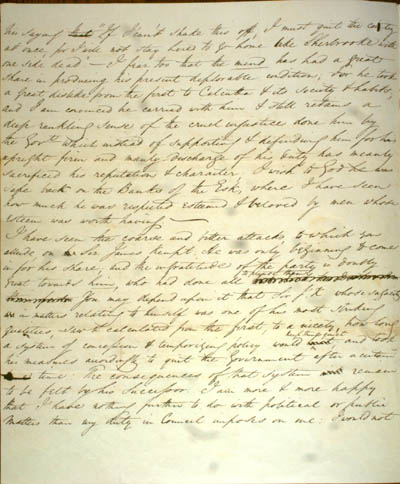 his saying "If I can't shake this off, I must quit the country
at once, for I will not stay here to go home like Sherbrooke with
one side dead — I fear too that the mind has had a great
share in producing his present deplorable condition, for he took
a great dislike from the first to Calcutta & its Society & habits,
and I am convinced he carried with him & still retains a
deep rankling sense of the cruel injustice done him by
the Govt. which instead of supporting & defending him for his
upright firm and manly discharge of his duty has meanly
sacrificed his reputation & character. I wish to God he was
safe back on the Banks of the Esk, where I have seen
how much he was respected esteemed & beloved by men whose
esteem was worth having —
I have seen the coarse and bitter attacks to which you
allude, on Sir James Kempt. He was only beginning to come
in for his share, and the ingratitude of the party is doubly
great towards him, who had done all
You may depend upon it that Sir J. K. whose sagacity
in matters relating to himself was one of his most striking
qualities, saw & calculated from the first, to a nicety, how long
a system of concession & temporizing policy would and took
his measures accordingly to quit the Government after a certain
time. The consequences of that system remain
to be felt by his Successor. I am more & more happy
that I have nothing further to do with political or public
matters than my duty in Council imposes on me: I would not